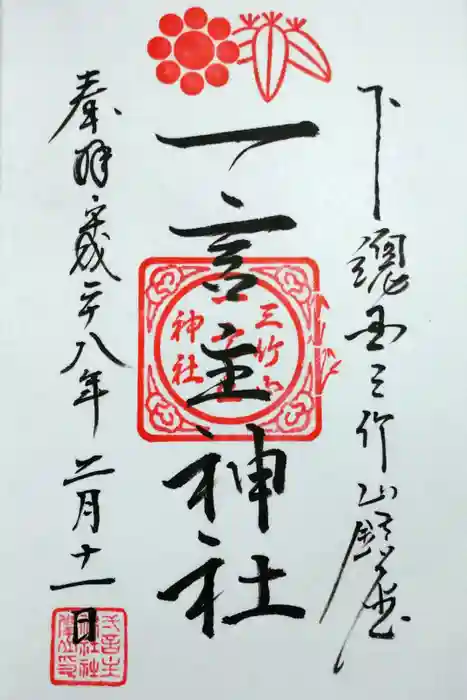 下總国三竹山鎮座
一言主神社
三竹山
神社
奉拝 平成二十八年二月十一日